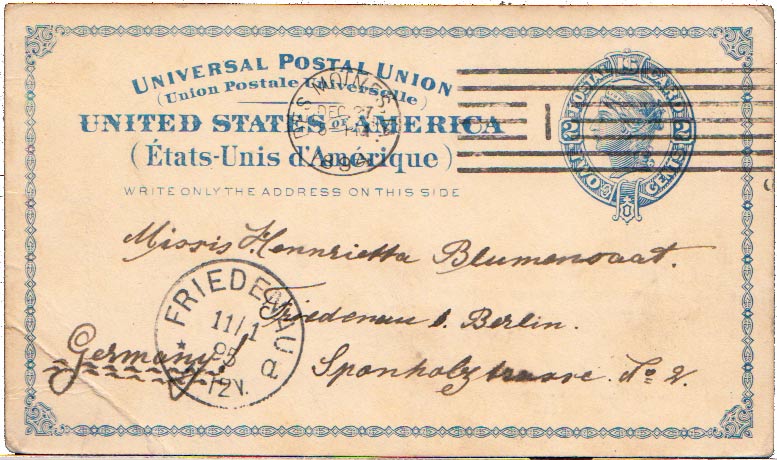 UNIVERSAL POSTAL UNION
(Union Postale Universelle)
UNITED STATES OF AMERICA
(États-Unis d'Amérique)
WRITE ONLY THE ADDRESS ON THIS SIDE
DES MOINES
DEC 27
1
POSTAL CARD
2 2
TWO CENTS
Missis Hennrietta Blumensaat.
Friedenau b. Berlin.
Sponholzstrasse. No 2.
Germany.
FRIEDENAU
11/1
95
12V.